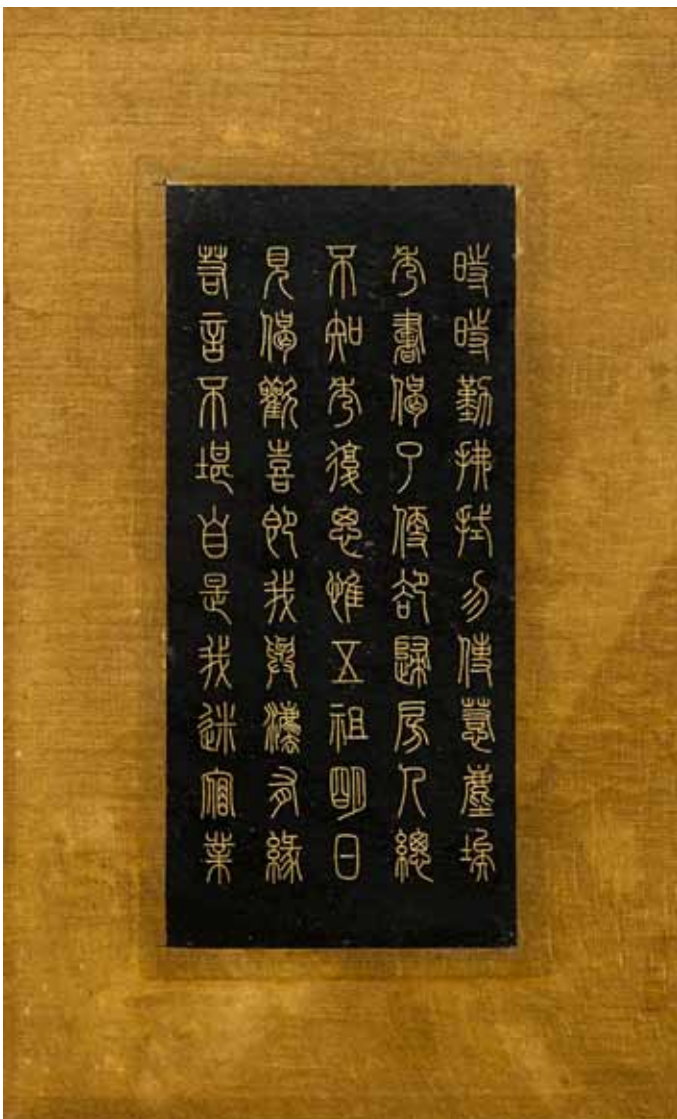 時時勤拂拭勿使惹塵埃
秀書偈了便卻歸房人總
不知秀復思惟五祖明日
見偈歡喜即我與法有緣
若言不堪自是我迷宿業